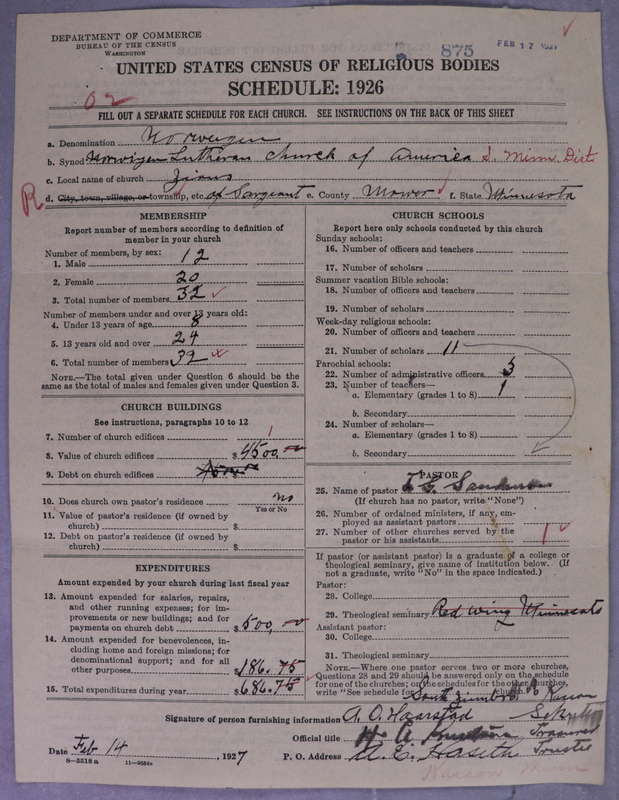 DEPARTMENT OF COMMERCE
BUREAU OF THE CENSUS
WASHINGTON
875
FEB 17 1927
UNITED STATES CENSUS OF RELIGIOUS BODIES
SCHEDULE: 1926
02
FILL OUT A SEPARATE SCHEDULE FOR EACH CHURCH. SEE INSTRUCTIONS ON THE BACK OF THIS SHEET
a. Denomination Norwegen
b. Synod Norwigen Lutheran Church of America S. Minn. Dist
c. Local name of church Zions
R d. City, town, village, or township, etc of Sargeant e. County Mower f. State Minnesota
MEMBERSHIP
Report number of members according to definition of member in your church
Number of members, by sex:
1. Male 12
2. Female 20
3. Total number of members 32
Number of members under and over 13 years old:
4. Under 13 years of age 8
5. 13 years old and over 24
6. Total number of members 32
NOTE.—The total given under Question 6 should be the
same as the total of males and females given under Question 3.
CHURCH BUILDINGS
See instructions, paragraphs 10 to 12
7. Number of church edifices 1
8. Value of church edifices $4500.00
9. Debt on church edifices
10. Does church own pastor's residence no
Yes or No
11. Value of pastor's residence (if owned by
church) $
12. Debt on pastor's residence (if owned by
church) $
EXPENDITURES
Amount expended by your church during last fiscal year
13. Amount expended for salaries, repairs,
and other running expenses; for im-
provements or new buildings; and for
payments on church debt $500.00
14. Amount expended for benevolences, in-
cluding home and foreign missions; for
denominational support; and for all
other purposes $186.75
15. Total expenditures during year $686.75
CHURCH SCHOOLS
Report here only schools conducted by this church
Sunday schools:
16. Number of officers and teachers
17. Number of scholars
Summer vacation Bible schools:
18. Number of officers and teachers
19. Number of scholars
Week-day religious schools:
20. Number of officers and teachers
21. Number of scholars 11
Parochial schools:
22. Number of administrative officers 3
23. Number of teachers—
a. Elementary (grades 1 to 8) 1
b. Secondary
24. Number of scholars—
a. Elementary (grades 1 to 8)
b. Secondary
PASTOR
25. Name of pastor
(If church has no pastor, write "None")
26. Number of ordained ministers, if any, em-
ployed as assistant pastors
27. Number of other churches served by the
pastor or his assistants 1
If pastor (or assistant pastor) is a graduate of a college or
theological seminary, give name of institution below. (If
not a graduate, write "No" in the space indicated.)
Pastor:
28. College
29. Theological seminary Red wing Minnecota
Assistant pastor:
30. College
31. Theological seminary
NOTE.—Where one pastor serves two or more churches,
Questions 28 and 29 should be answered only on the schedule
for one of the churches; on the schedules for the other churches,
write "See schedule for South Zumbro church."
Signature of person furnishing information A. O. Haarstad
Official title
Date Feb 14, 1927
P. O. Address
8—5518a 11—9554
Kasson Minn